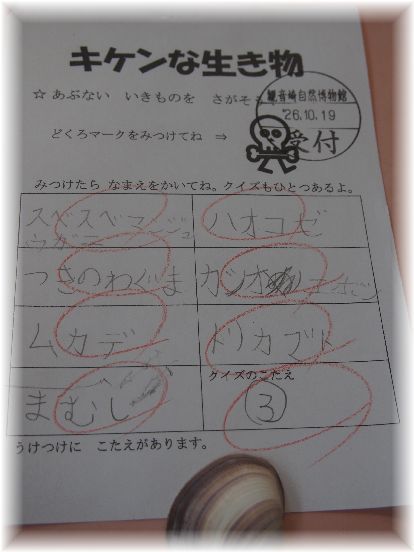 キケンな生き物
☆ あぶない いきものを さがそ
観音崎自然博物館
'26.10.19
受付
どくろマークをみつけてね ⇒
みつけたら なまえをかいてね。クイズもひとつあるよ。
スベスベマンジュ
ウガニ
ハオコゼ
つきのわぐま
カツオ
エボシ
ムカデ
トリカブト
まむし
クイズのこたえ
③
うけつけに こたえがあります。